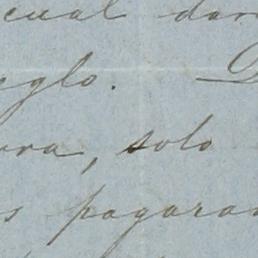 cual dar
eglo.
ra, solo
s pagaran